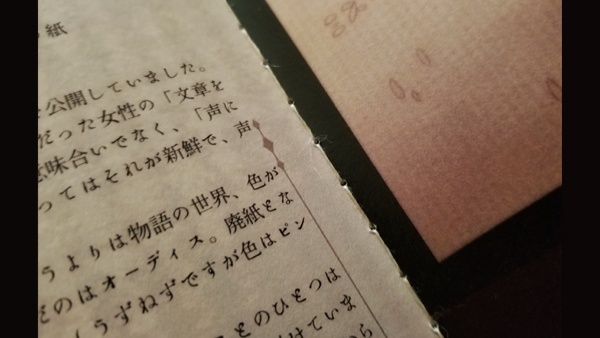 紙
公開していました。
だった女性の「文章を
意味合いでなく、「声に
ってはそれが新鮮で、声
うよりは物語の世界、色が
のはオーディス。廃紙とな
うずねずですが色はピン
とのひとつは
けていま
から